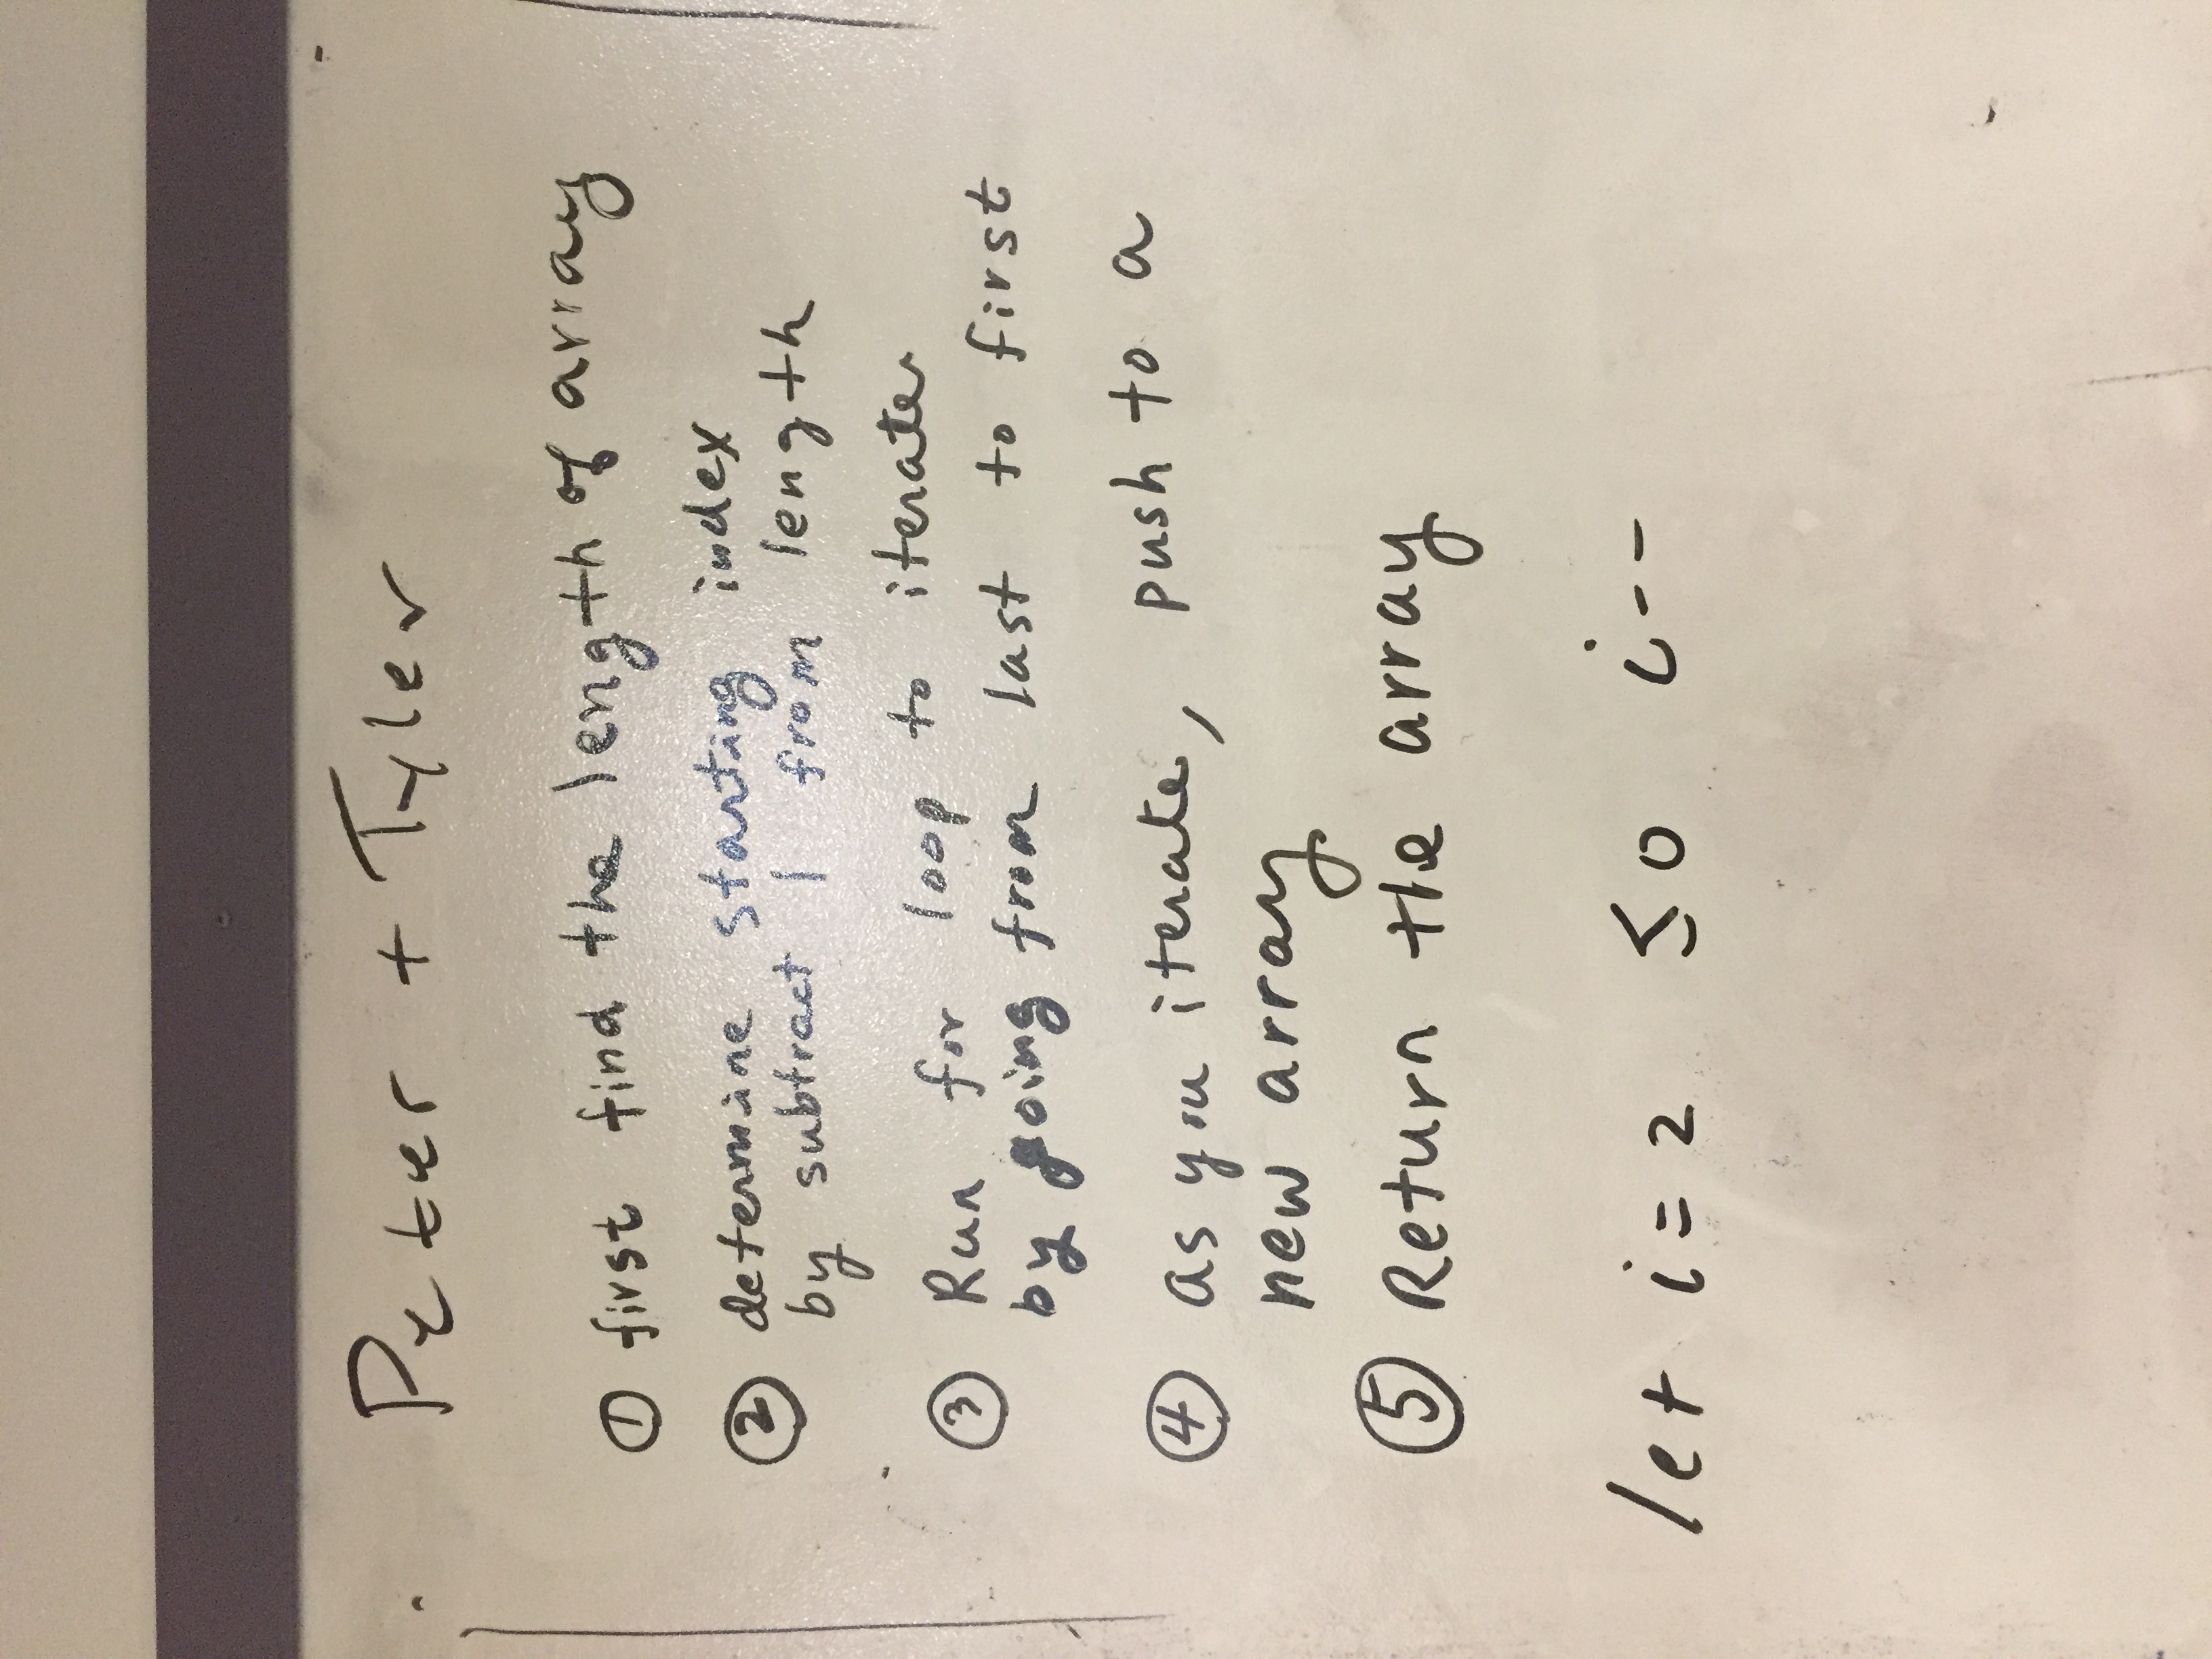 Peter + Tyler
① first find the length of array
② determine starting index
by subtract 1 from length
③ Run for loop to iterate
by going from last to first
④ as you iterate, push to a
new array
⑤ Return the array
let i = 2 ≤ 0 i--